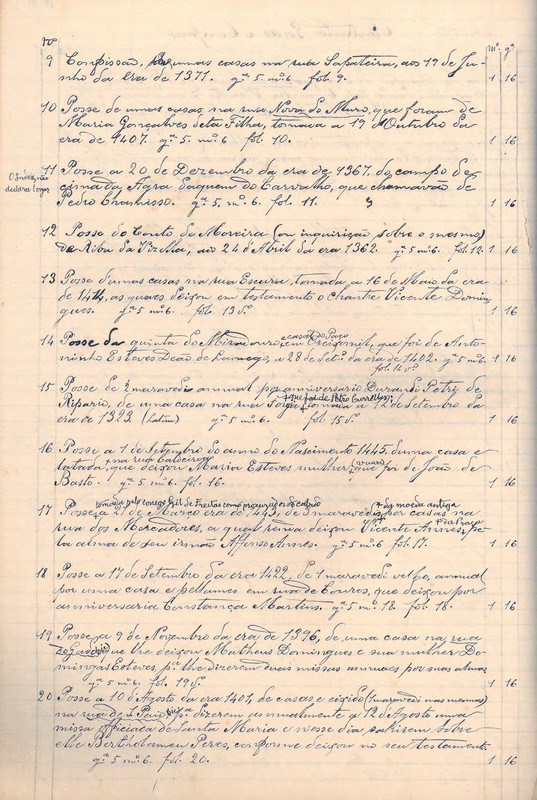 Nº
mº gº
9 Compissão, de umas casas na rua Sapateira, aos 19 de Ju-
nho da era de 1371. gª 5. mº 6 fol. 9. 1 16
10 Posse de umas casas, na rua Nova do Muro, que foram de
Maria Gonçalves desta Filha, tomada a 19 d'Outubro da
era de 1407. gª 5. mº 6 fol. 10. 1 16
11 Posse a 20 de Dezembro da era de 1367. do campo de
O Index, não declara logar
da Agra daquem do Carvalho, que chamavão de
Pedro gª 5. mº 6. fol. 11. 1 16
12 Posse do Couto de Moreira (ou inquirição sobre o mesmo)
de Riba da Vizella, aos 24 de Abril da era 1362. gª 5 mº 6. fol. 12. 1 16
13 Posse d'umas casas na rua Escura, tomada a 16 de Maio da era
de 1414, as quaes deixou em testamento o Chantre Vicente Domin-
gues. gª 5. mº 6. fol. 13 1 16
14 Posse da quinta do Miradouro, em Creixomil, que foi de Anto-
casal do Paço
ninho Esteves Deão de Lamego, a 28 de Setº da era de 1402. gª 5 mº 6. 1 16
fol. 14
15 Posse de maravedi annual por anniversario Durando Petri de
Ripario, de uma casa na rua tomada a 12 de Setembro da
+ que foi de Petro
era de 1323. (latim) gª 5. mº 6. fol. 15 1 16
16 Posse a 1 de Setembro do anno do Nascimento 1445. d'uma casa e
latada, que deixou Maria Esteves mulher, que foi de João de
+ na rua
Basto. gª 5. mº 6. fol. 16. 1 16
tomada pelo conego Gil de Freitas como procurador do cabido
+ da moeda antiga
17 Posse, a 21 de Março era de 1443, de 3 maravedis, por casas na
rua dos Mercadores, a qual renda deixou Vicente Annes, pe-
+ da Praça
la alma de seu irmão Affonso Annes. gª 5. mº 6 fol. 17. 1 16
18 Posse a 17 de Setembro da era 1422, de 1 maravedi velho, annual
por uma casa e pellames em rua de Couros, que deixou por
anniversaria Constança Martins. gª 5 mº 18. fol. 18. 1 16
19 Posse, a 9 de Novembro da era de 1396, de uma casa na rua
que lhe deixou Matheus Domingues e sua mulher Do-
mingas Esteves pª lhe dizerem duas missas annuaes por suas almas
gª 5 mº 6. fol. 19 1 16
20 Posse a 10 d'Agosto da era 1401, de casas e eixido (1 maravedi nas mesmas)
na rua de S. Paio (sic) pª dizerem annualmente a 12 d'Agosto uma
missa officiada de Santa Maria e n'esse dia sahirem sobre
elle Bertholameu Peres, conforme deixou no seu testamento
gª 5. mº 6. fol. 20. 1 16